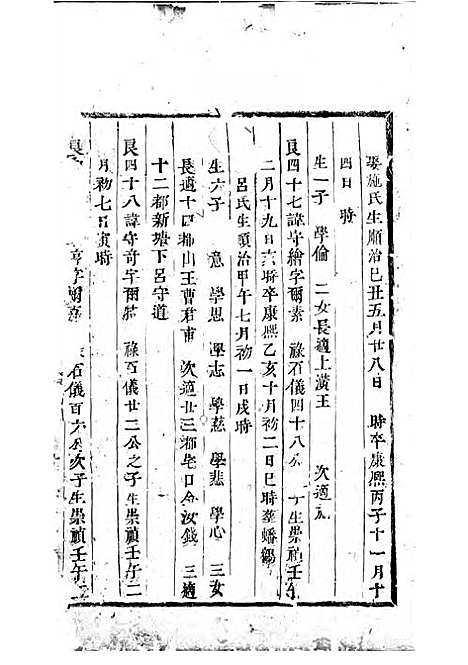 娶施氏生順治己丑五月廿八日　時卒康熙丙子十一月十
四日　時
生一子　學倫　二女長適上演王　次適
艮四十七諱守繪字爾素　祿百儀四十八公　子生崇禎壬午
二月十九日亥時卒康熙乙亥十月初二日巳時葬蟠
呂氏生順治甲午七月初一日戌時
生六子　意　學思　學志　學慈　學悲　學心　三女
長適十四都山王曹君甫　次適廿三都宅口余汝錢　三適
十二都新塘下呂守道
艮四十八諱守奇字爾　祿百儀廿二公之子生崇禎壬午二
月初七日寅時
字爾　百儀百六公次子生崇禎壬午